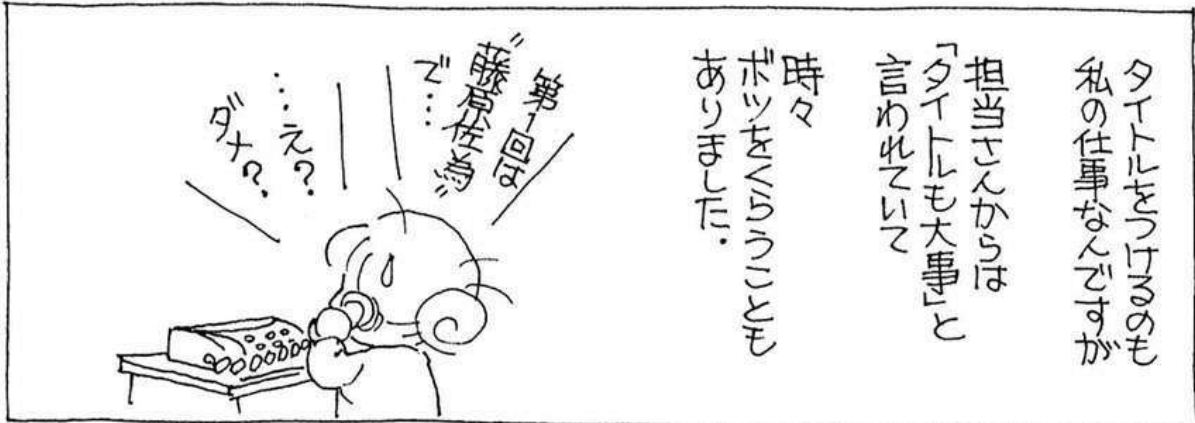 タイトルをつけるのも
私の仕事なんですが
担当さんからは
「タイトルも大事」と
言われていて
時々
ボツをくらうことも
ありました.
第1回は
"藤原佐為"
で…
…え?
ダナ?